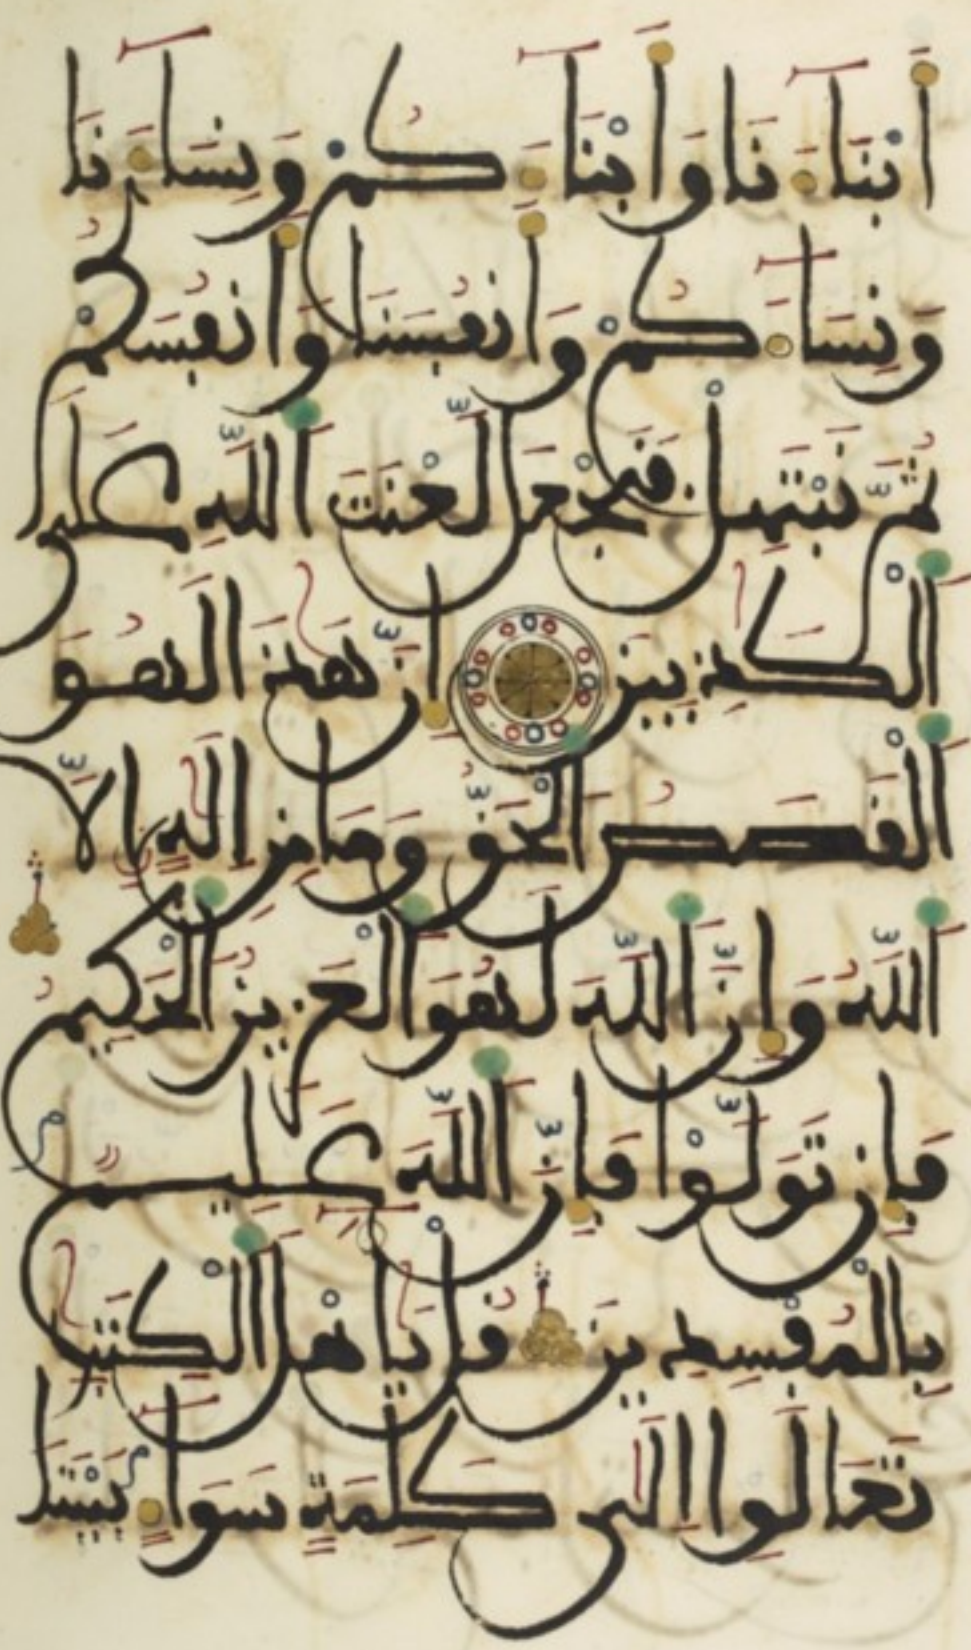 أَبْنَآءَنَا وَأَبْنَآءَكُمْ وَنِسَآءَنَا
وَنِسَآءَكُمْ وَأَنفُسَنَا وَأَنفُسَكُمْ
ثُمَّ نَبْتَهِلْ فَنَجْعَل لَّعْنَتَ اللَّهِ عَلَى
الْكَٰذِبِينَ إِنَّ هَٰذَا لَهُوَ
الْقَصَصُ الْحَقُّ وَمَا مِنْ إِلَٰهٍ إِلَّا
اللَّهُ وَإِنَّ اللَّهَ لَهُوَ الْعَزِيزُ الْحَكِيمُ
فَإِن تَوَلَّوْا فَإِنَّ اللَّهَ عَلِيمٌ
بِالْمُفْسِدِينَ قُلْ يَٰأَهْلَ الْكِتَٰبِ
تَعَالَوْا إِلَىٰ كَلِمَةٍ سَوَآءٍ بَيْنَنَا